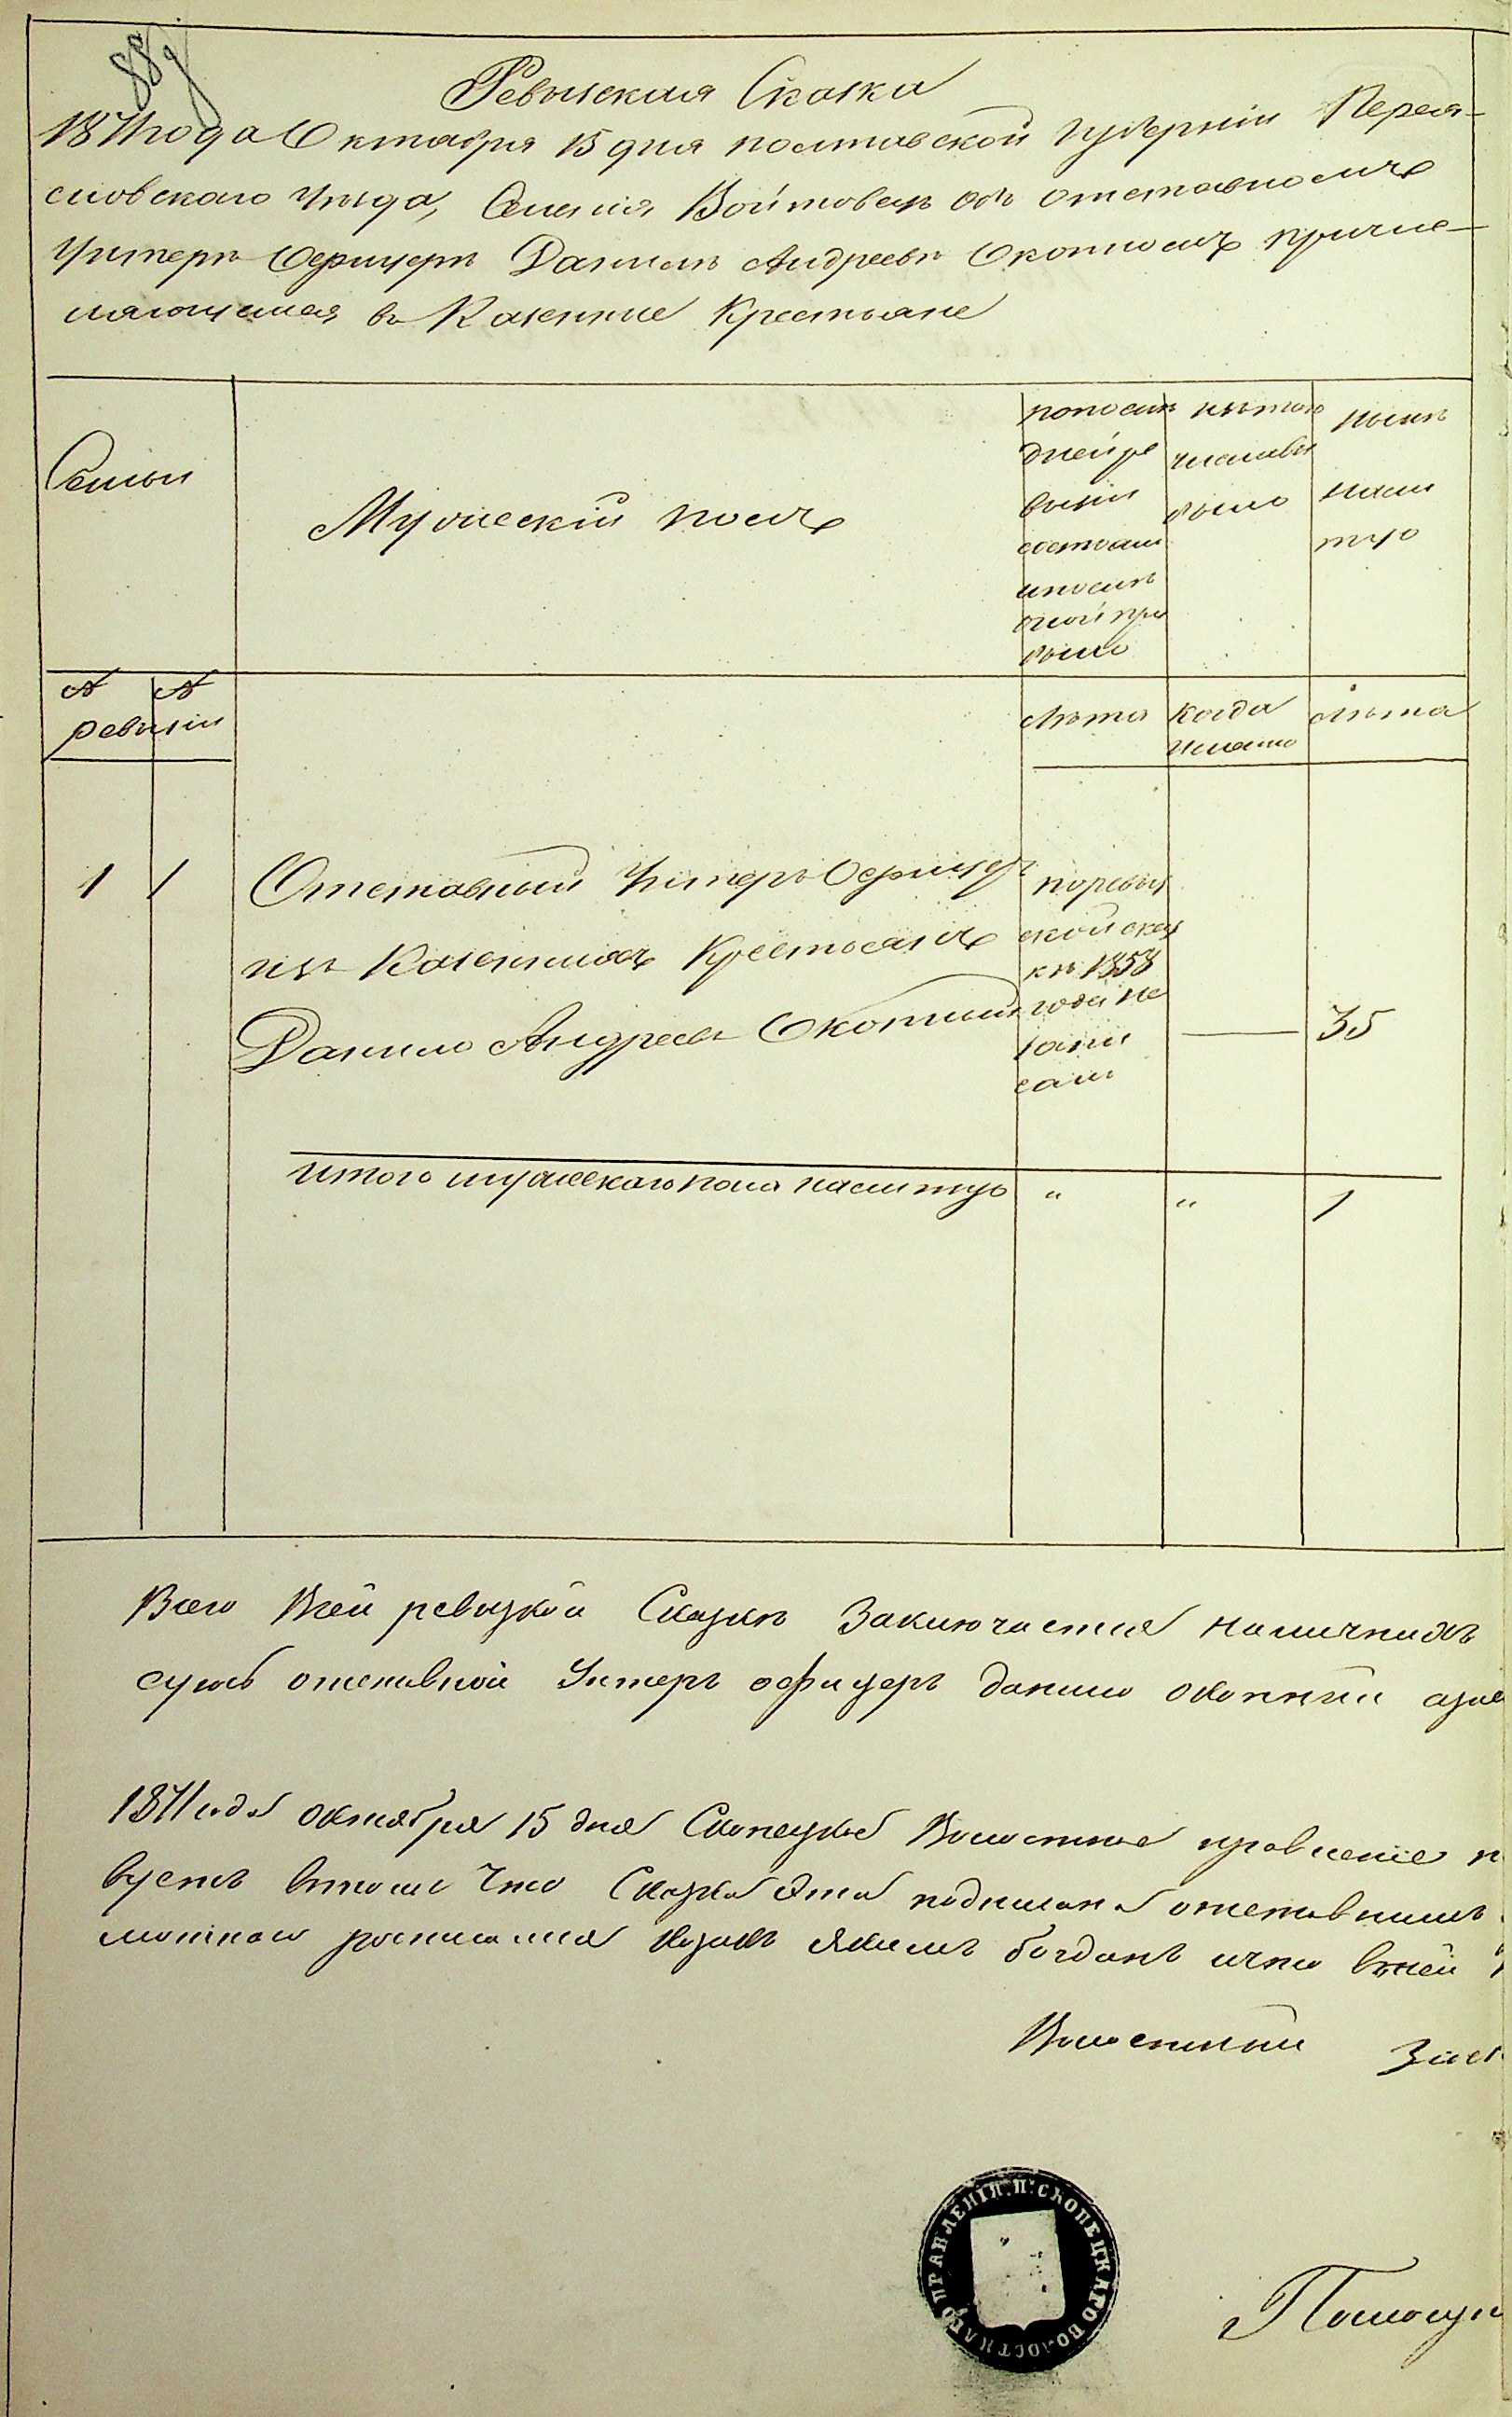 889
Ревизская Сказка
1871 года Октября 15 дня полтавской губерніи Перея-
словскаго уезда, Селенія Войтовець объ отставномъ
Унтеръ Офицеръ Данилъ Андреевъ Окопномъ причис-
ляющемся въ Казенные Крестьяне
Семьи
Мужескій полъ
попослѣ
дней ре
визіи
состоял
и послѣ
оной при
было
изъ того
числа вы
было
Нынѣ
нали
цо
№ №
ревизіи
Лѣта
Когда
именно
Лѣта
1 1
Отставный Унтеръ Офицеръ
изъ Казенныхъ Крестьянъ
Данило Андреевъ Окопный
по ревиз
ской сказ
кѣ 1858
года не
запи
санъ
— 35
Итого мужескаго пола налицо " " 1
Всего В сей ревизкой Сказкѣ Заключается наличныхъ
отставной Унтеръ офицеръ данило окопній
1871 года октября 15 дня Скопецкое Волостное правленіе
вуетъ втомъ Что Сказка эта подписана отставнымъ
росписался козакъ Якимъ богданъ ичто вней
Волостный
ПРАВЛЕНІЯ. П. СКОПЕЦКАГО ВОЛОСТНАГО
Помощн